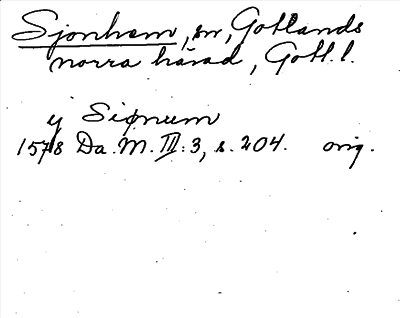 Sjonhem, sn, Gotlands
norra härad, Gotl. l.
ÿ Siønum
1578 Da. M. III: 3, s. 204. orig.